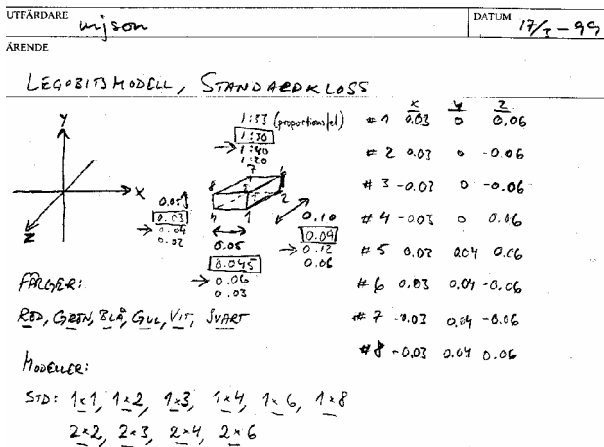 UTFÄRDARE
DATUM 17/3-99
ÄRENDE
LEGOBITSMODELL, STANDARDKLOSS
Y
X
Z
1:33 (proportionsfel)
1:30
→ 1:40
1:20
7
8
2
4
1
0.05
0.03
→ 0.04
0.02
0.05
0.045
→ 0.06
0.03
0.10
0.09
→ 0.12
0.06
X Y Z
#1 0.03 0 0.06
#2 0.03 0 -0.06
#3 -0.03 0 -0.06
#4 -0.03 0 0.06
#5 0.03 0.04 0.06
#6 0.03 0.04 -0.06
#7 -0.03 0.04 -0.06
#8 -0.03 0.04 0.06
FÄRGER:
RÖD, GRÖN, BLÅ, GUL, VIT, SVART
MODELLER:
STD: 1x1, 1x2, 1x3, 1x4, 1x6, 1x8
2x2, 2x3, 2x4, 2x6